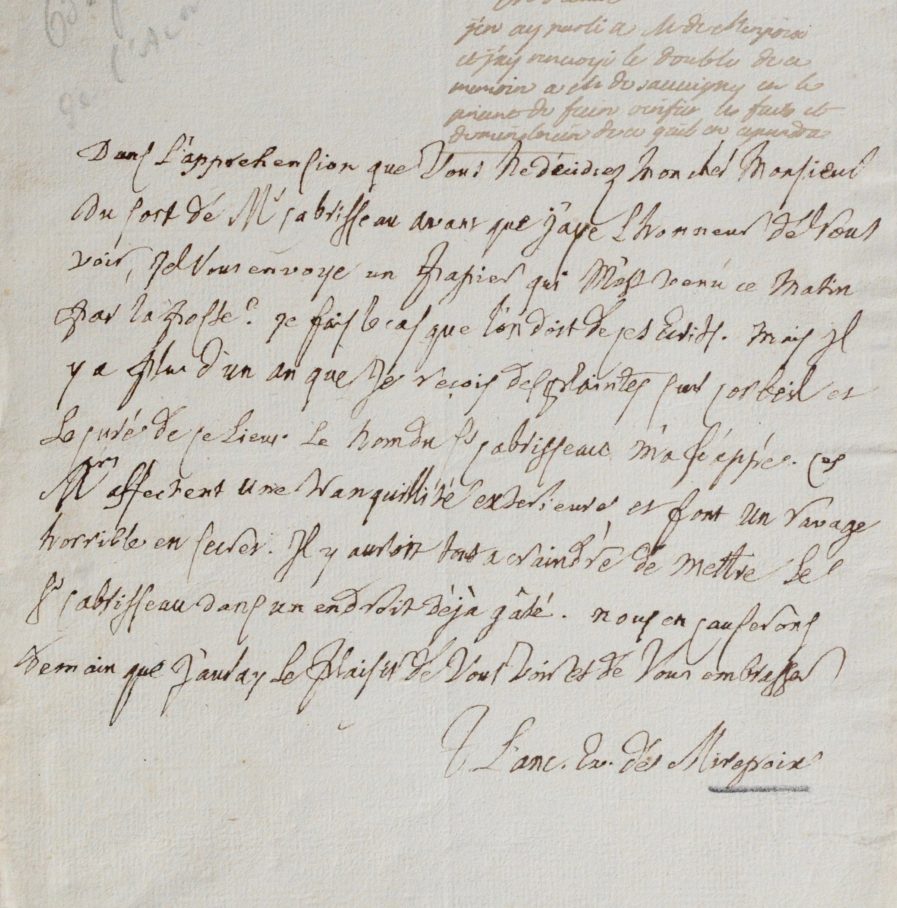 j'en ay parlé a M de Mirepoix
et j'ay renvoyé le double de ce
memoire a Mr de Sauvigny en le
priant de faire verifier les faits et
de me
Dans L'apprehension que Vous Ne decidiez Mon cher Monsieur
Du sort de Mr Cabrisseau avant que J'aye L'honneur de Vous
voir, Je Vous envoye un Papier qui M'est venu ce Matin
Par la Poste. Je fais le cas que l'on doit de ces Ecrits. Mais Il
y a Plus d'un an que Je reçois des plaintes sur Corbeil et
Le curé de ce Lieu. Le Nom du Sr Cabrisseau M'a frappé. Ces
Mrs affectent Une tranquillité exterieure et font Un ravage
horrible en secret. Il y auroit tout a craindre de Mettre Le
Sr Cabrisseau dans un endroit déjà gâté. Nous en causerons
demain que J'auray Le Plaisir de Vous Voir et de Vous embrasser
L'anc. Ev. de Mirepoix